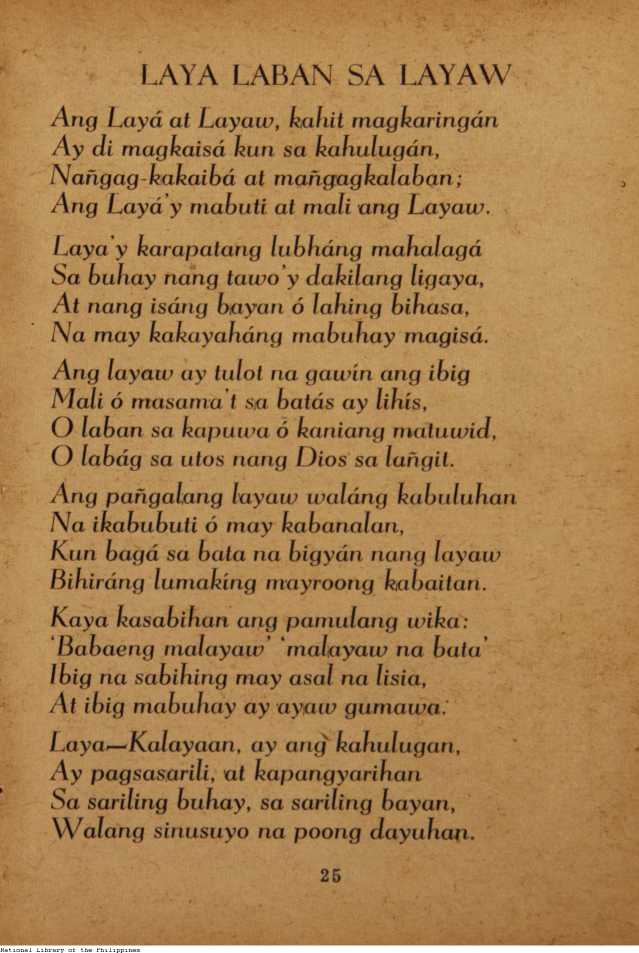 LAYA LABAN SA LAYAW
Ang Layá at Layaw, kahit magkaringán
Ay di magkaisá kun sa kahulugán,
Nañgag-kakaibá at mañgagkalaban;
Ang Layá'y mabuti at mali ang Layaw.
Laya'y karapatang lubháng mahalagá
Sa buhay nang tawo'y dakilang ligaya,
At nang isáng bayan ó lahing bihasa,
Na may kakayaháng mabuhay magisá.
Ang layaw ay tulot na gawín ang ibig
Mali ó masama't sa batás ay lihís,
O laban sa kapuwa ó kaniang matuwid,
O labág sa utos nang Dios sa lañgit.
Ang pañgalang layaw waláng kabuluhan
Na ikabubuti ó may kabanalan,
Kun bagá sa bata na bigyán nang layaw
Bihiráng lumakíng mayroong kabaitan.
Kaya kasabihan ang pamulang wika:
'Babaeng malayaw' 'malayaw na bata'
Ibig na sabihing may asal na lisia,
At ibig mabuhay ay ayaw gumawa.
Laya—Kalayaan, ay ang kahulugan,
Ay pagsasarili, at kapangyarihan
Sa sariling buhay, sa sariling bayan,
Walang sinusuyo na poong dayuhan.
25
National Library of the Philippines